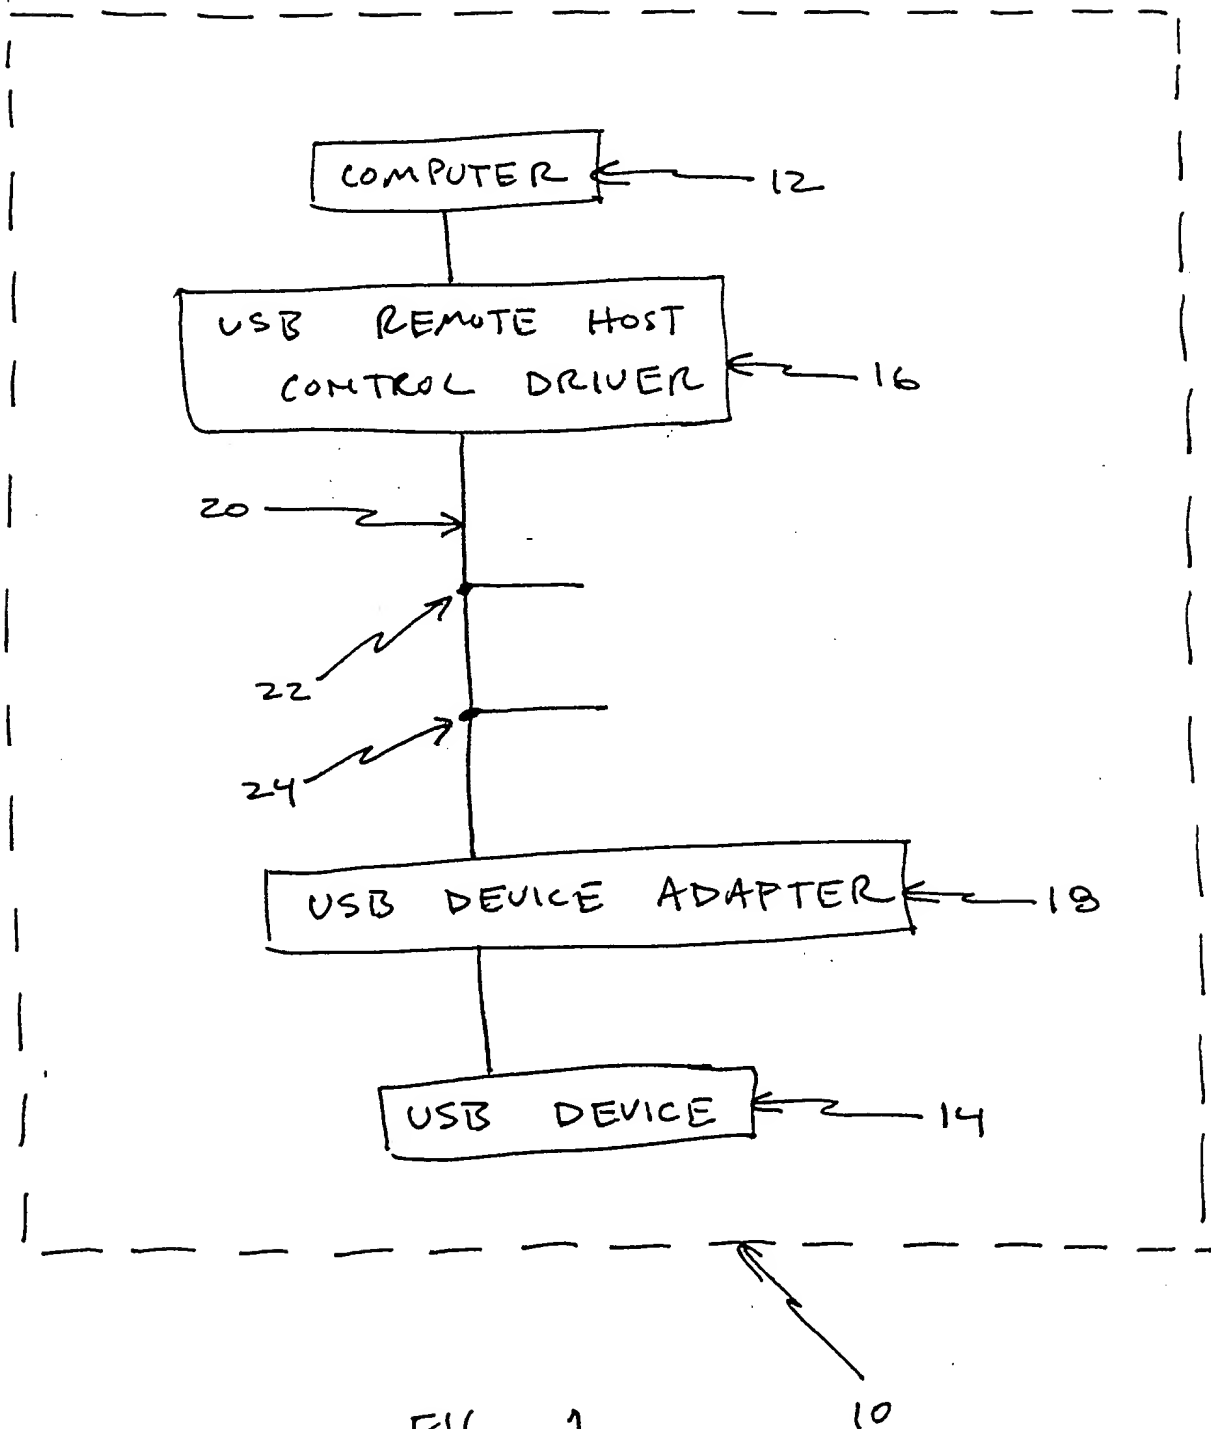 COMPUTER
12
USB REMOTE HOST
CONTROL DRIVER
16
20
22
24
USB DEVICE ADAPTER
18
USB DEVICE
14
10
1